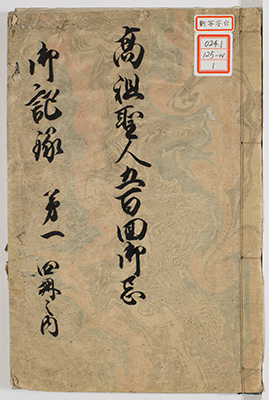 高祖聖人五百回御忌
御記録 第一 四冊之内
新写字台
024.1
125-W
1